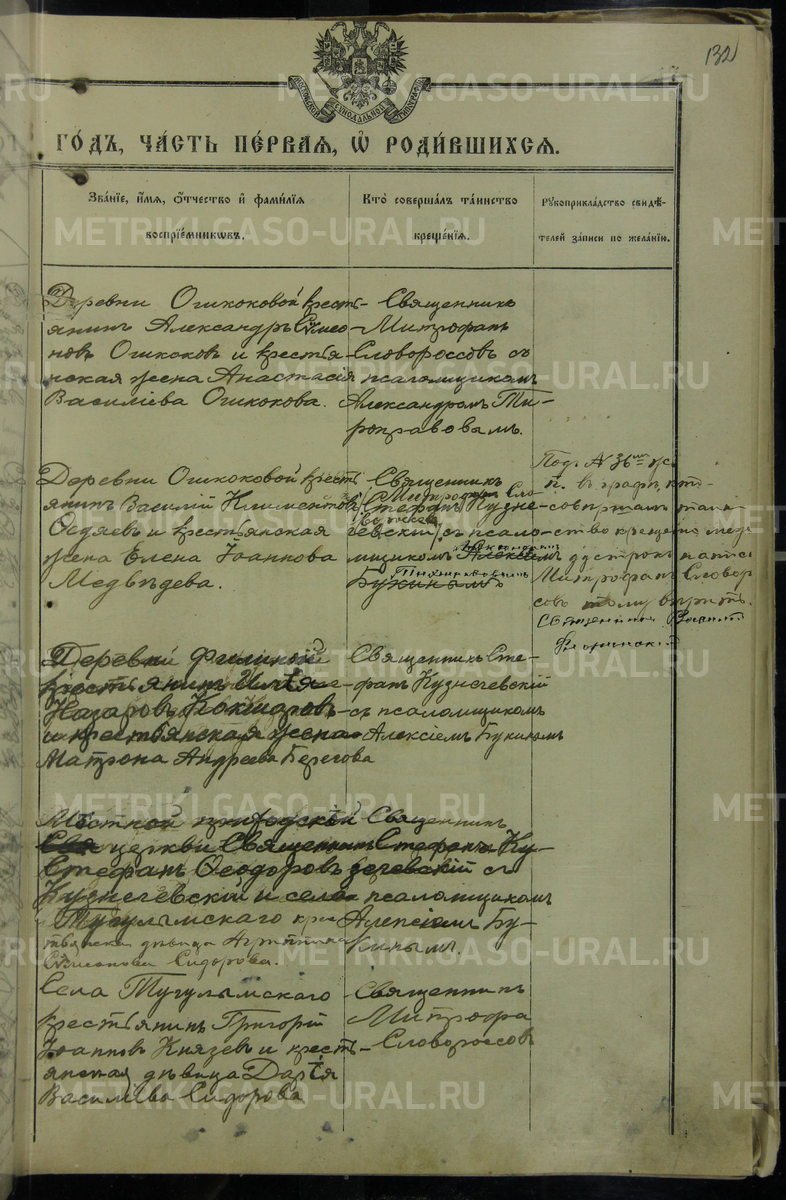 132
МОСКОВСКОЙ СУНОДАЛЬНОЙ ТИПОГРАФIИ
ГОДЪ, ЧАСТЬ ПЕРВАЯ, Ѡ РОДИВШИХСЯ.
Званiе, имя, отчество и фамилiя воспрiемникѡвъ.
Кто совершалъ таинство крещенiя.
Рукоприкладство свидѣтелей записи по желанiю.
Деревни Ошкоковой кресть-
янинъ Александръ Симео
новъ Ошкоковъ и крестья-
нская жена Анастасiя
Василiева Ошкокова.
Священникъ
Митрофанъ
Словороссовъ съ
псаломщикомъ
Александромъ Ти-
хоправовамъ.
Деревни Ошкоковой кресть
янинъ Василiй Климентовъ
Осдяевъ и крестьянская
жена Елена Iоаннова
Медвѣдева.
Священникъ
Митрофанъ Сло
Стефанъ Кузне-
воросовъ
чевскiй съ псало-
мщикомъ Алексiемъ
Букинымъ
Подъ №36
въ графѣ кто
совершалъ таин-
ство крещенiя меж
ду строкъ
Митрофанъ Словор
совъ тому вѣрить.
Священникъ
Деревни
крестьянинъ
Назаровъ Кокшаровъ
и крестьянская жена
Матрона Андреева Берегова
Священникъ Сте-
фанъ Кузнечевскiй
съ псаломщикомъ
Алексiемъ Букинымъ
Мѣстной приходской
церкви Священникъ
Стефанъ Ѳеодоровъ
Кузнечевскiй и села
Тугулымскаго крес
тьянская дѣвица Агриппина
Симеонова Сидорова.
Священникъ
Стефанъ Ку-
знечевскiй съ
псаломщикомъ
Алексiемъ Бу-
кинымъ.
Села Тугулымскаго
крестьянинъ Григорiй
Iоанновъ Князевъ и кресть-
янская дѣвица Дарiя
Василiева Сидорова
Священникъ
Митрофа
Словороссовъ
METRIKI.GASO-URAL.RU